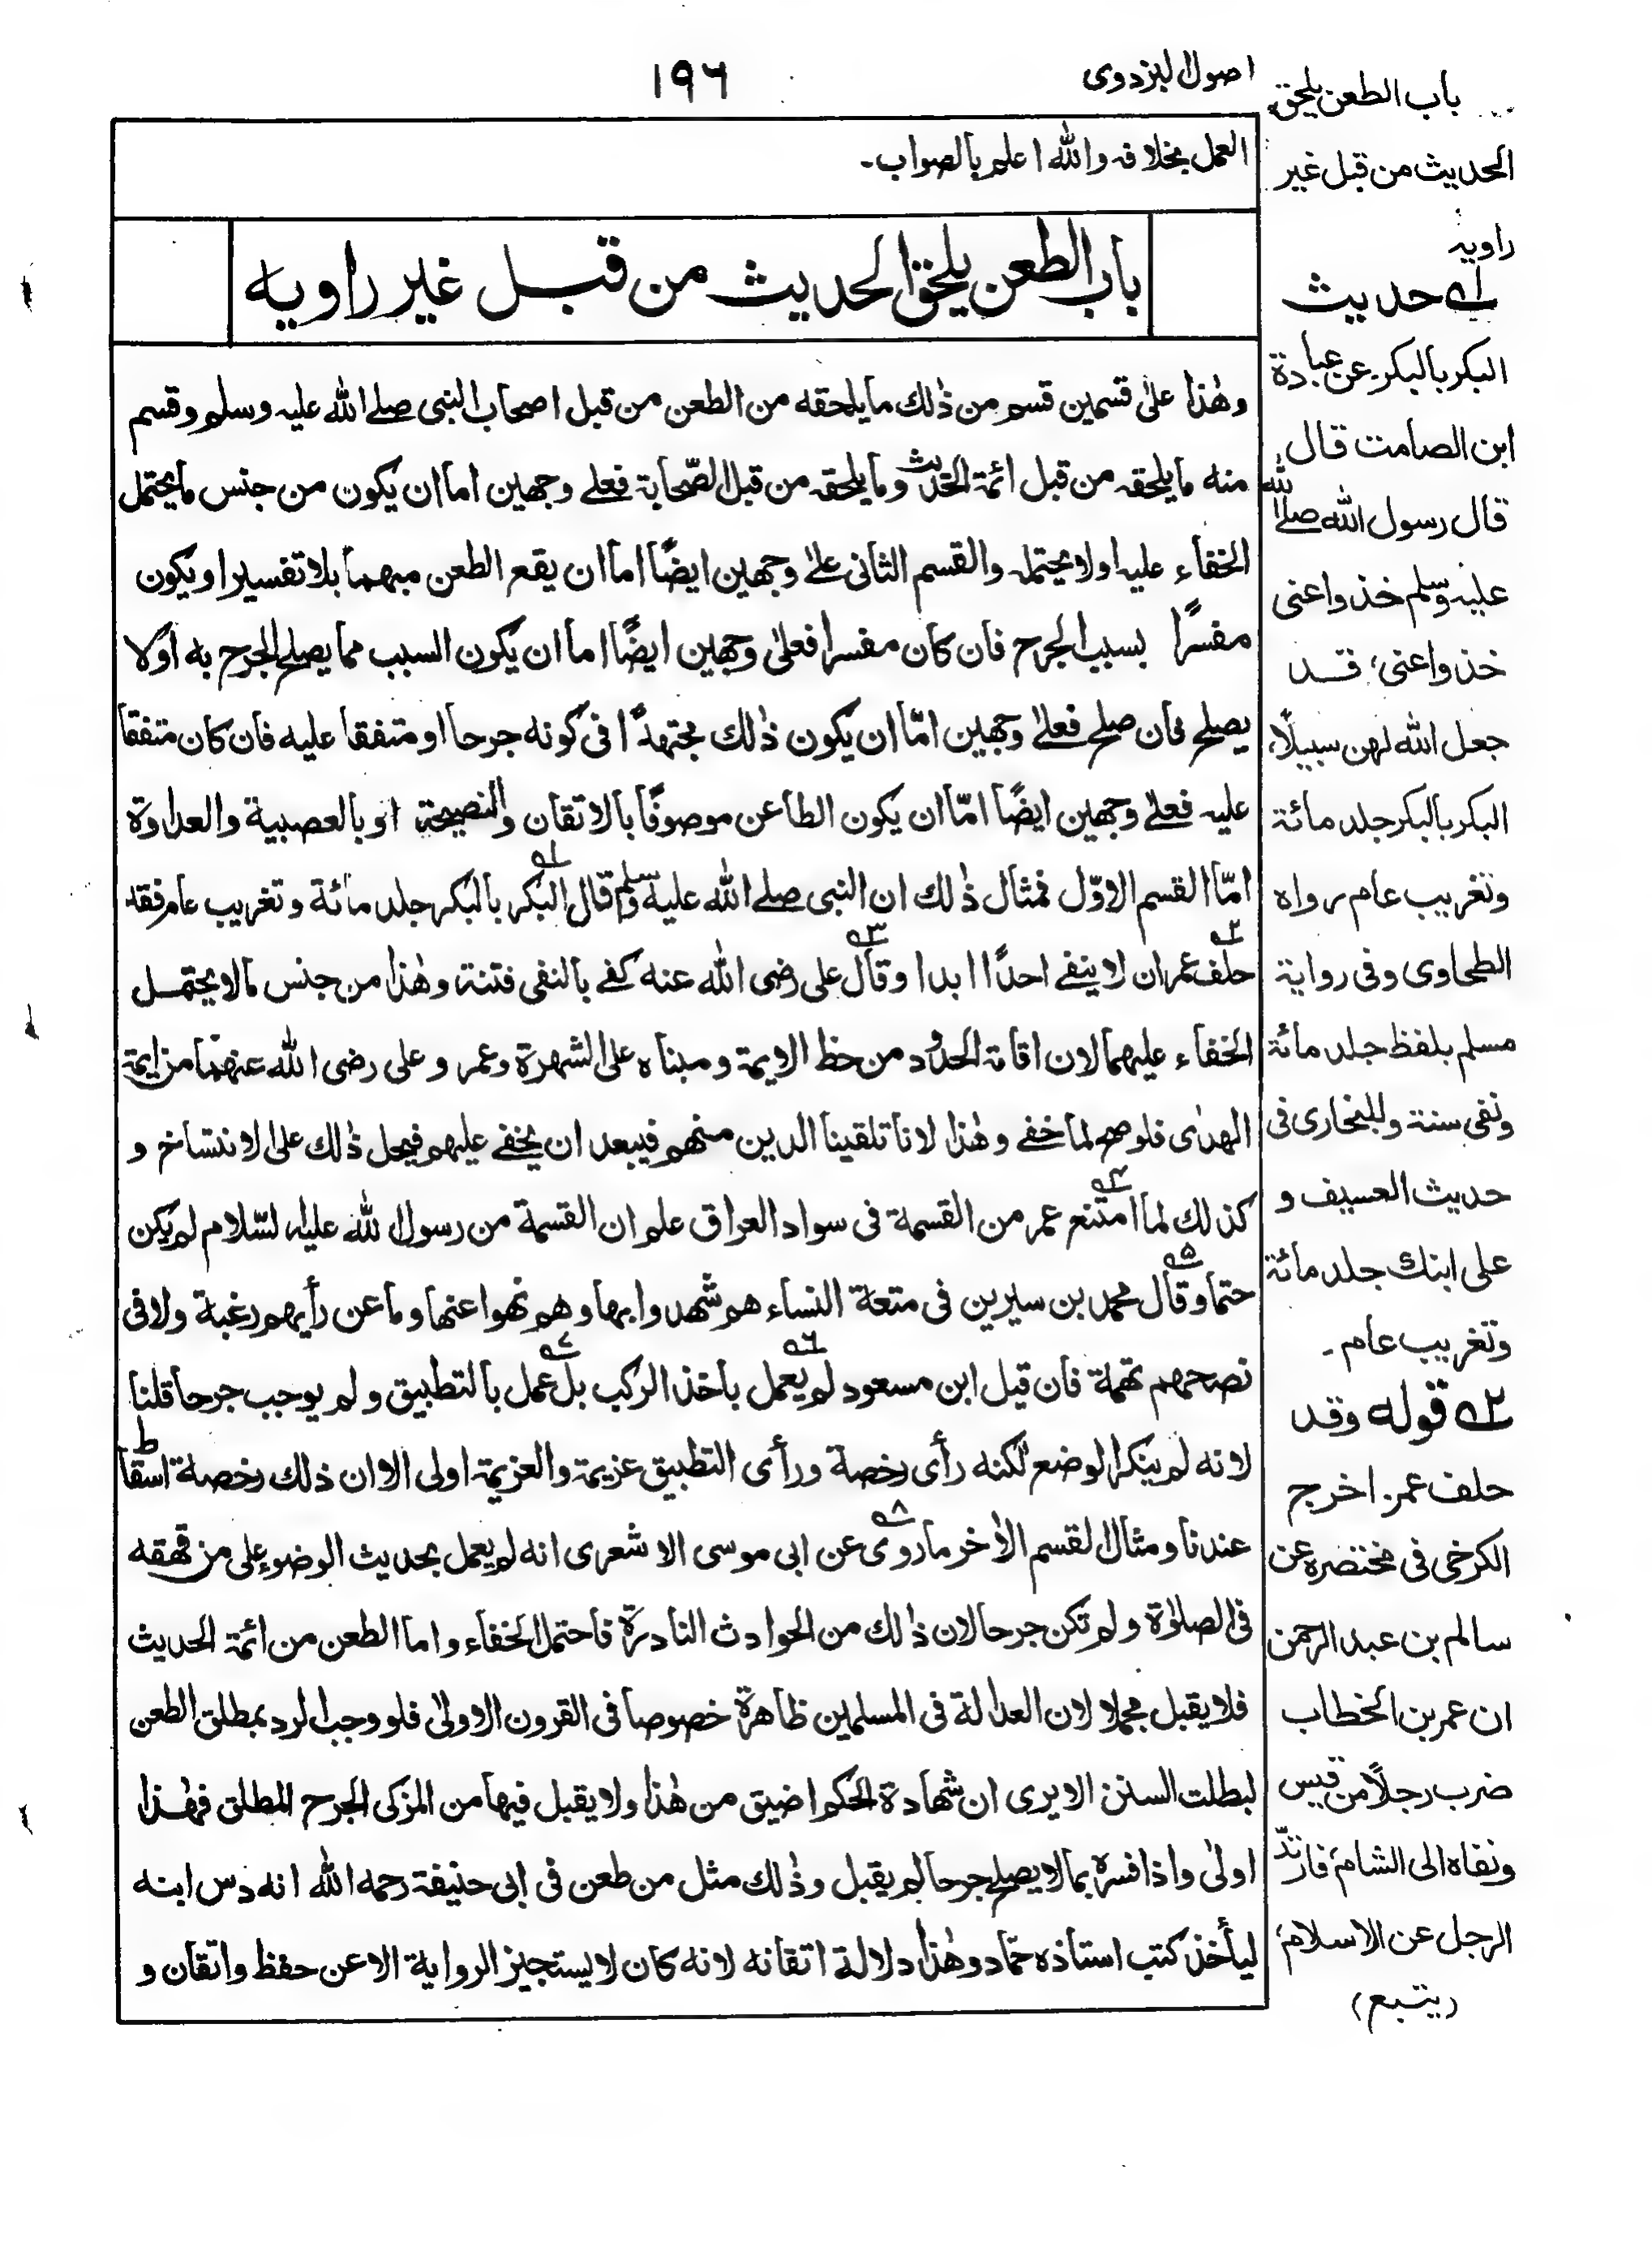 اصول البزدوى
١٩٦
العمل بخلافه والله اعلم بالصواب۔
باب الطعن يلحق الحديث من قبل غير راويه
وهٰذا على قسمين قسم من ذٰلك ما يلحقه من الطعن من قبل اصحاب النبى صلے الله عليه وسلم وقسم
منه ما يلحقه من قبل ائمة الحديث وما يلحقه من قبل الصّحابة فعلے وجهين اما ان يكون من جنس ما يحتمل
الخفاء عليه اولا يحتمله والقسم الثانى علے وجهين ايضًا اما ان يقع الطعن مبهما بلا تفسير او يكون
مفسرًا بسبب الجرح فان كان مفسرا فعلى وجهين ايضًا اما ان يكون السبب مما يصلح الجرح به اولا
يصلح فان صلح فعلے وجهين امّا ان يكون ذٰلك مجتهدًا فى كونه جرحا او متفقا عليه فان كان متفقا
عليه فعلے وجهين ايضًا امّا ان يكون الطاعن موصوفًا بالاتقان والنصيحة او بالعصبية والعداوة
امّا القسم الاوّل فمثال ذٰلك ان النبى صلے الله عليه وسلم قال البكر بالبكر جلد مائة وتغريب عام فقد
حلف عمر ان لا ينفے احدًا ابدا وقال على رضى الله عنه كفے بالنفى فتنة وهٰذا من جنس مالا يحتمل
الخفاء عليهما لان اقامة الحدود من حظ الايمة ومبناه على الشهرة وعمر و على رضى الله عنهما من ايمة
الهدٰى فلو صح لما خفے وهٰذا لانا تلقينا الدين منهم فيبعد ان يخفے عليهم فيحمل ذٰلك على الانتساخ و
كذلك لما امتنع عمر من القسمة فى سواد العراق علم ان القسمة من رسول الله عليه السّلام لم يكن
حتما وقال محمد بن سيرين فى متعة النساء هم شهدوا بها وهم نهوا عنها وما عن رأيهم رغبة ولا فى
نصحهم تهمة فان قيل ابن مسعود لم يعمل باخذ الركب بل عمل بالتطبيق و لم يوجب جرحا قلنا
لانه لم ينكر الوضع لكنه رأى رخصة ورأى التطبيق عزيمة والعزيمة اولى الا ان ذلك رخصة اسقاط
عندنا ومثال القسم الاٰخر ما روى عن ابى موسى الاشعرى انه لم يعمل بحديث الوضوء على من قهقه
فى الصلوٰة و لم تكن جرحا لان ذٰلك من الحوادث النادرة فاحتمل الخفاء واما الطعن من ائمة الحديث
فلا يقبل مجملا لان العدالة فى المسلمين ظاهرة خصوصا فى القرون الاولىٰ فلو وجب الرد بمطلق الطعن
لبطلت السنن الا يرى ان شهادة الحكم اضيق من هٰذا ولا يقبل فيها من المزكى الجرح المطلق فهٰذا
اولىٰ واذا فسره بما لا يصلح جرحا لم يقبل وذٰلك مثل من طعن فى ابى حنيفة رحمه الله انه دس ابنه
ليأخذ كتب استاذه حمّاد وهٰذا دلالة اتقانه لانه كان لا يستجيز الرواية الا عن حفظ واتقان و
باب الطعن يلحق
الحديث من قبل غير
راويه
١ے حديث
البكر بالبكر۔ عن عبادة
ابن الصامت قال
قال رسول الله صلے الله
عليه وسلم خذوا عنى
خذوا عنى، قد
جعل الله لهن سبيلًا،
البكر بالبكر جلد مائة
وتغريب عام رواه
الطحاوى وفى رواية
مسلم بلفظ جلد مائة
ونفى سنة وللبخارى فى
حديث العسيف و
على ابنك جلد مائة
وتغريب عام۔
٢ے قوله وقد
حلف عمر۔ اخرج
الكرخى فى مختصره عن
سالم بن عبد الرحمن
ان عمر بن الخطاب
ضرب رجلًا من قيس
ونفاه الى الشام، فارتدّ
الرجل عن الاسلام،
(يتبع)